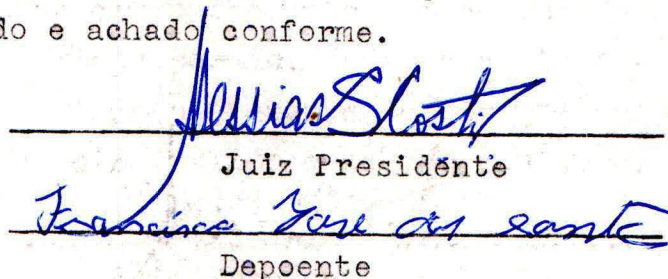 do e achado conforme.
Messias S Costa
Juiz Presidente
Francisco Jose dos Santos
Depoente